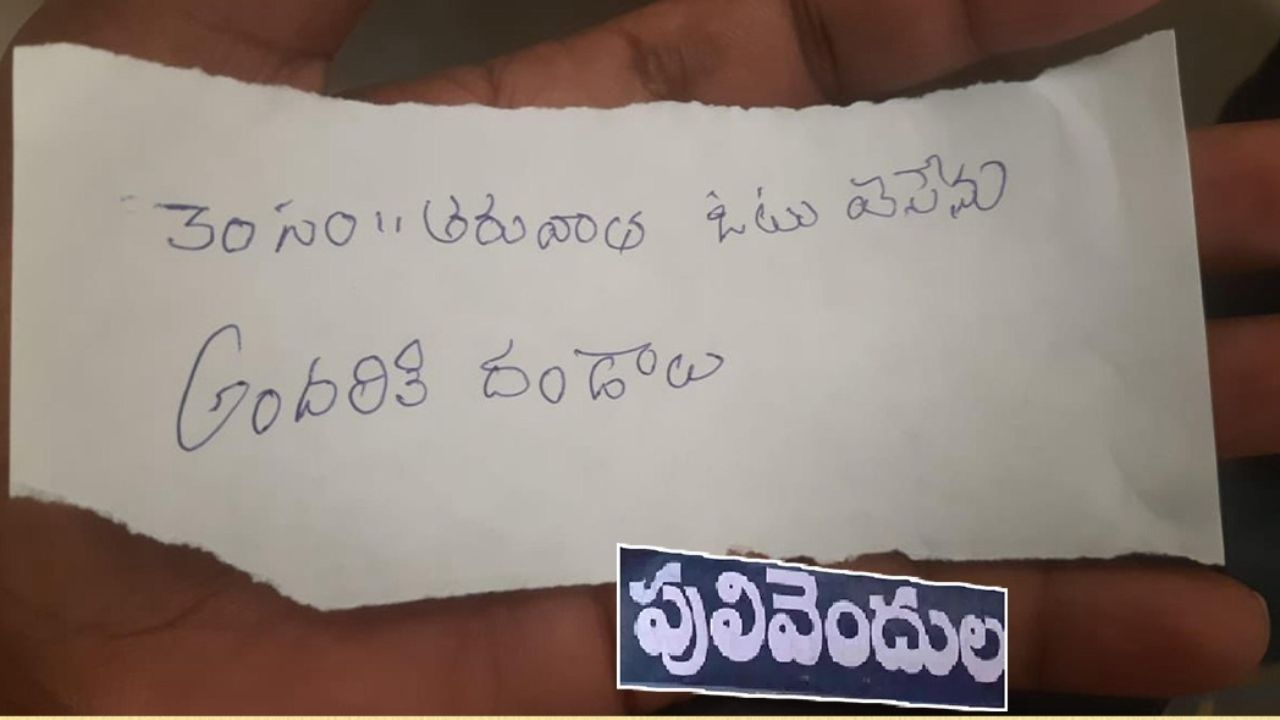 30 సం" తరువాత ఓటు వేసేను
అందరికి దండాలు
పులివెందుల